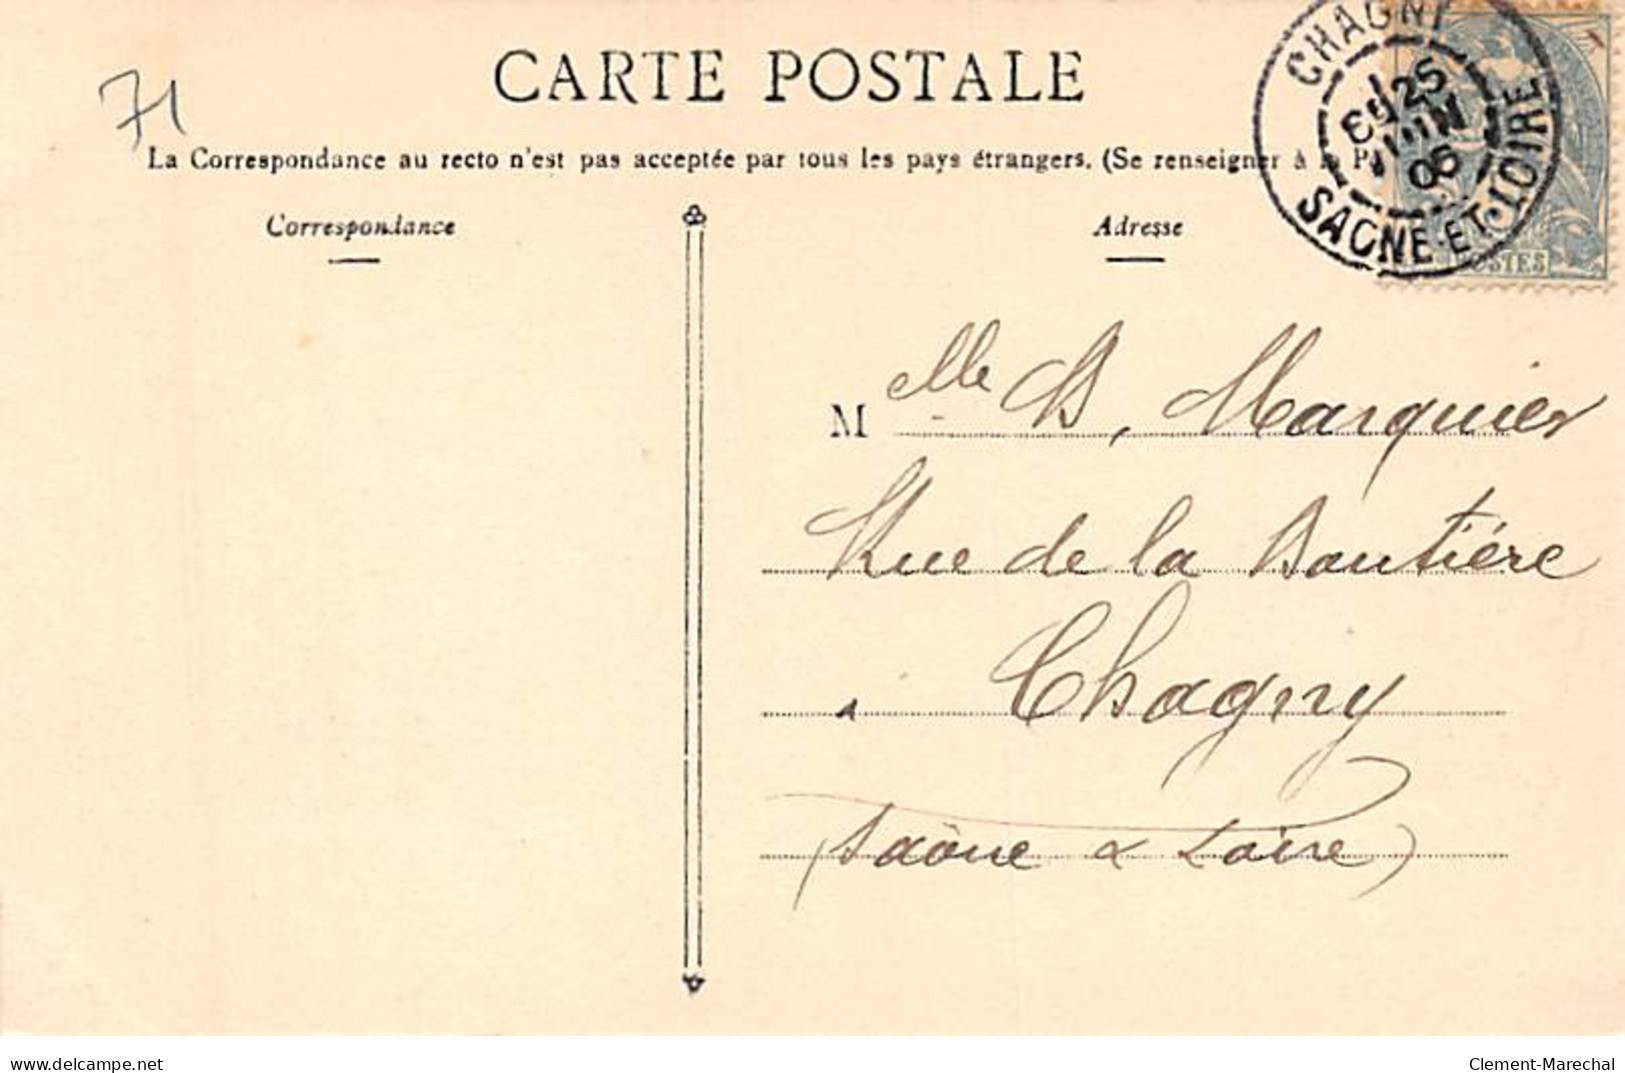 71
CARTE POSTALE
La Correspondance au recto n'est pas acceptée par tous les pays étrangers. (Se renseigner à la P
Correspondance
Adresse
CHAGNY
25
JUIN
06
SAONE-ET-LOIRE
POSTES
M elle B, Marquier
Rue de la Boutière
à Chagny
(Saône & Loire)
delcampe.net
Clement-Marechal